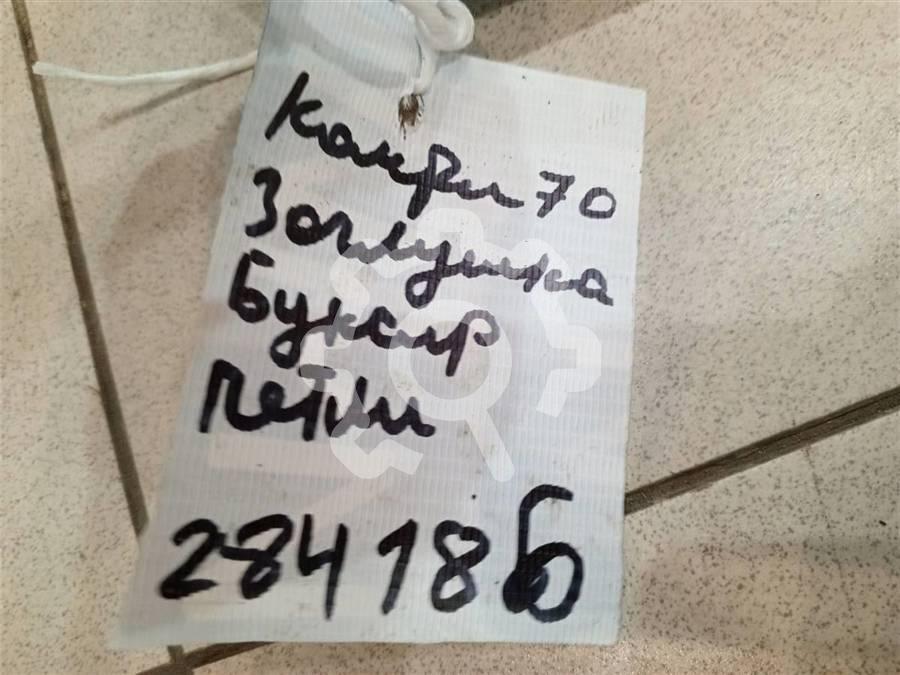 Камри 70
Заглушка
Буксир
петли
284186